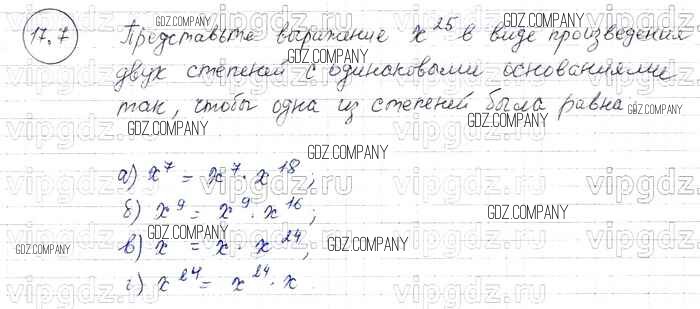 17.7 Представьте выражение x^25 в виде произведения
двух степеней с одинаковыми основаниями
так, чтобы одна из степеней была равна
а) x^7 = x^7 · x^18;
б) x^9 = x^9 · x^16;
в) x = x · x^24;
г) x^24 = x^24 · x.
GDZ.COMPANY
vipgdz.ru